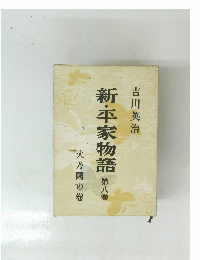 吉川英治
新・平家物語
第八巻
火乃國の巻